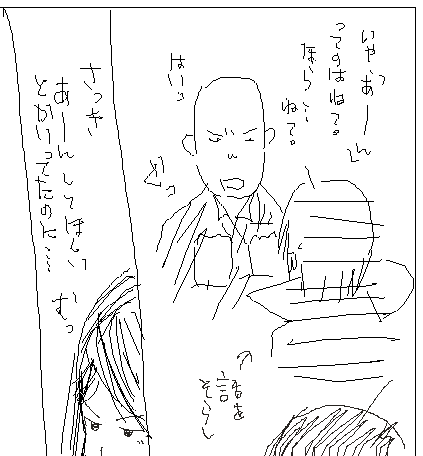 いやっあーん
ってのはねぇ。
ほら…
ねぇ。
はーっ
話を
そらし
さっき
あーんしてほしい
とかいってたのに…
むっ